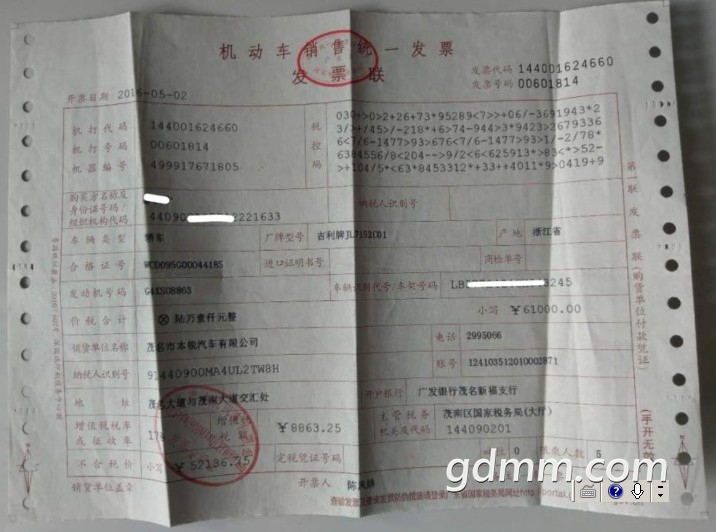 机动车销售统一发票
发票联
发票代码 144001624660
发票号码 00601814
开票日期 2016-05-02
机打代码 144001624660
机打号码 00601814
机器编号 499917671805
税控码
030+>0>2+26+73*95289<7>>+06/-3691943*2
3/>+/45>/-218*+6>74-944>3*9423>2679336
6<7/6-1477>93>676<7/6-1477>93>1/-2/78*
6384556/8<204-->9/2<6<625913*>83<*>52-
>+104/5*<63*8453312*+33++4011*9>0419+9
购买方名称及
身份证号码/
组织机构代码
44090 2221633
纳税人识别号
车辆类型 轿车 厂牌型号 吉利牌JL7152CD1 产地 浙江省
合格证号 WCD095G00044185 进口证明书号 商检单号
发动机号码 G4XS08863 车辆识别代号/车架号码 LB 3245
价税合计 ⊗陆万壹仟元整 小写 ￥61000.00
销货单位名称 茂名市本骏汽车有限公司 电话 2995066
纳税人识别号 91440900MA4UL2TW8H 账号 12410351201000​2871
地址 茂名大道与茂南大道交汇处 开户银行 广发银行茂名新福支行
增值税税率
或征收率
增值税
税额
￥8863.25
主管税务
机关及代码
茂南区国家税务局(大厅)
144090201
不含税价 小写 ￥52136.75 完税凭证号码 0 限乘人数 5
销货单位盖章 开票人
第一联 发票联(购货单位付款凭证)
(手开无效)
gdmm.com